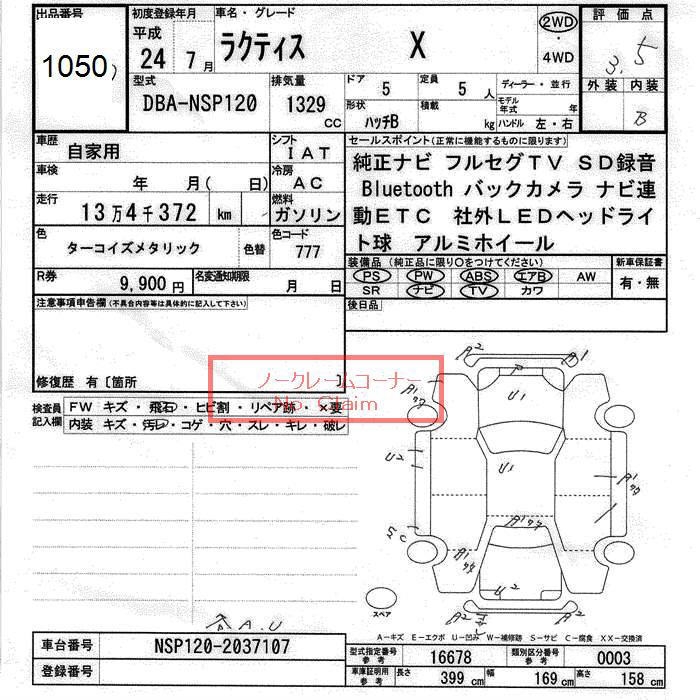 出品番号
1050
初度登録年月
平成
24年 7月
車名・グレード
ラクティス X
2WD
・
4WD
評価点
3.5
外装 内装
B
型式
DBA-NSP120
排気量
1329
cc
ドア 5
定員 5人
形状 ハッチB
積載 kg
ディーラー・並行
モデル年式 年
ハンドル 左・右
車歴
自家用
シフト
IAT
車検
年 月( 日)
冷房
AC
走行
13万4千372 km
燃料
ガソリン
色
ターコイズメタリック
色替
色コード
777
R券
9,900円
名変通知期限
月 日
セールスポイント(正常に機能するものに限ります)
純正ナビ フルセグTV SD録音
Bluetooth バックカメラ ナビ連
動ETC 社外LEDヘッドライ
ト球 アルミホイール
装備品(純正品に限り○をつけてください)
PS PW ABS エアB AW
SR ナビ TV カワ
新車保証書
有・無
後日品
注意事項申告欄(不具合内容等は具体的に記入して下さい)
修復歴 有〔箇所 〕
ノークレームコーナー
No. Claim
検査員
記入欄
FW キズ・飛石・ヒビ割・リペア跡・×要
内装 キズ・汚レ・コゲ・穴・スレ・キレ・破レ
A2
A1
U1
U2
U1
A1
U2
A2
A2
スペア
各A.U
A-キズ E-エクボ U-凹み W-補修跡 S-サビ C-腐食 XX-交換済
車台番号
NSP120-2037107
登録番号
型式指定番号
参考
16678
類別区分番号
参考
0003
車庫証明用
参考
長さ 399 cm
幅 169 cm
高さ 158 cm